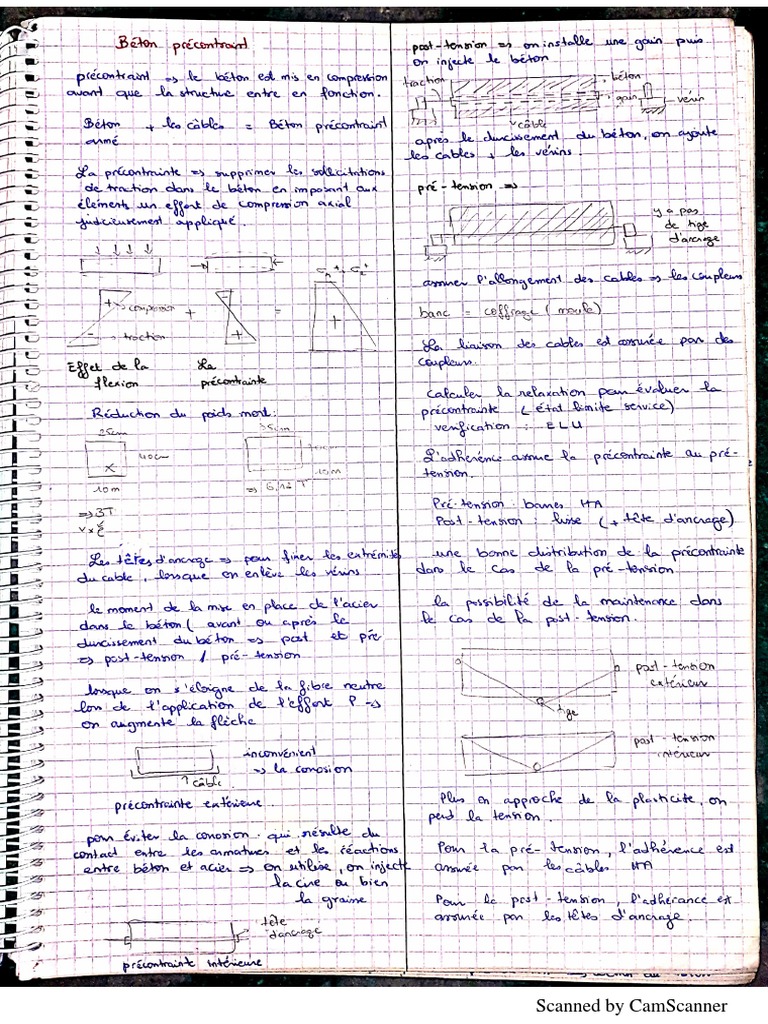 Béton précontraint
précontraint => le béton est mis en compression
avant que la structure entre en fonction.
Béton + les câbles = Béton précontraint
armé
La précontrainte => supprimer les sollicitations
de traction dans le béton en imposant aux
éléments un effort de compression axial
judicieusement appliqué.
+ -> compression + + = +
- -> traction
Effet de la flexion
La précontrainte
Réduction du poids mort:
25cm
40cm
10m
=> 3T
25cm
10m
Les têtes d'ancrage => pour fixer les extrémités
du cable, lorsque on enlève les vérins
le moment de la mise en place de l'acier
dans le béton (avant ou après le
durcissement du béton => post et pré
=> post-tension / pré-tension
lorsque on s'éloigne de la fibre neutre
lors de l'application de l'effort P =>
on augmente la flèche
inconvénient
=> la corrosion
câble
précontrainte extérieure
pour éviter la corrosion qui résulte du
contact entre les armatures et les réactions
entre béton et acier => on utilise, on injecte
la cire ou bien
la graine
tête
d'ancrage
précontrainte intérieure
post-tension => on installe une gain puis
on injecte le béton
traction
béton
gain
vérin
câble
après le durcissement du béton, on ajoute
les cables + les vérins.
pré-tension =>
y a pas
de tige
d'ancrage
assurer l'allongement des cables => les coupleurs
banc = coffrage (moule)
La liaison des cables est assurée par des
coupleurs.
Calculer la relaxation pour évaluer la
précontrainte (état limite service)
verification : ELU
L'adhérence assure la précontrainte au pré-
tension.
Pré-tension : barres HA
Post-tension : lisse (+ tête d'ancrage)
une bonne distribution de la précontrainte
dans le cas de la pré-tension.
la possibilité de la maintenance dans
le cas de la post-tension.
post-tension
extérieur
tige
post-tension
intérieur
Plus on approche de la plasticité, on
perd la tension.
Pour la pré-tension, l'adhérence est
assurée par les câbles HA
Pour la post-tension, l'adhérance est
assurée par les têtes d'ancrage.
Scanned by CamScanner